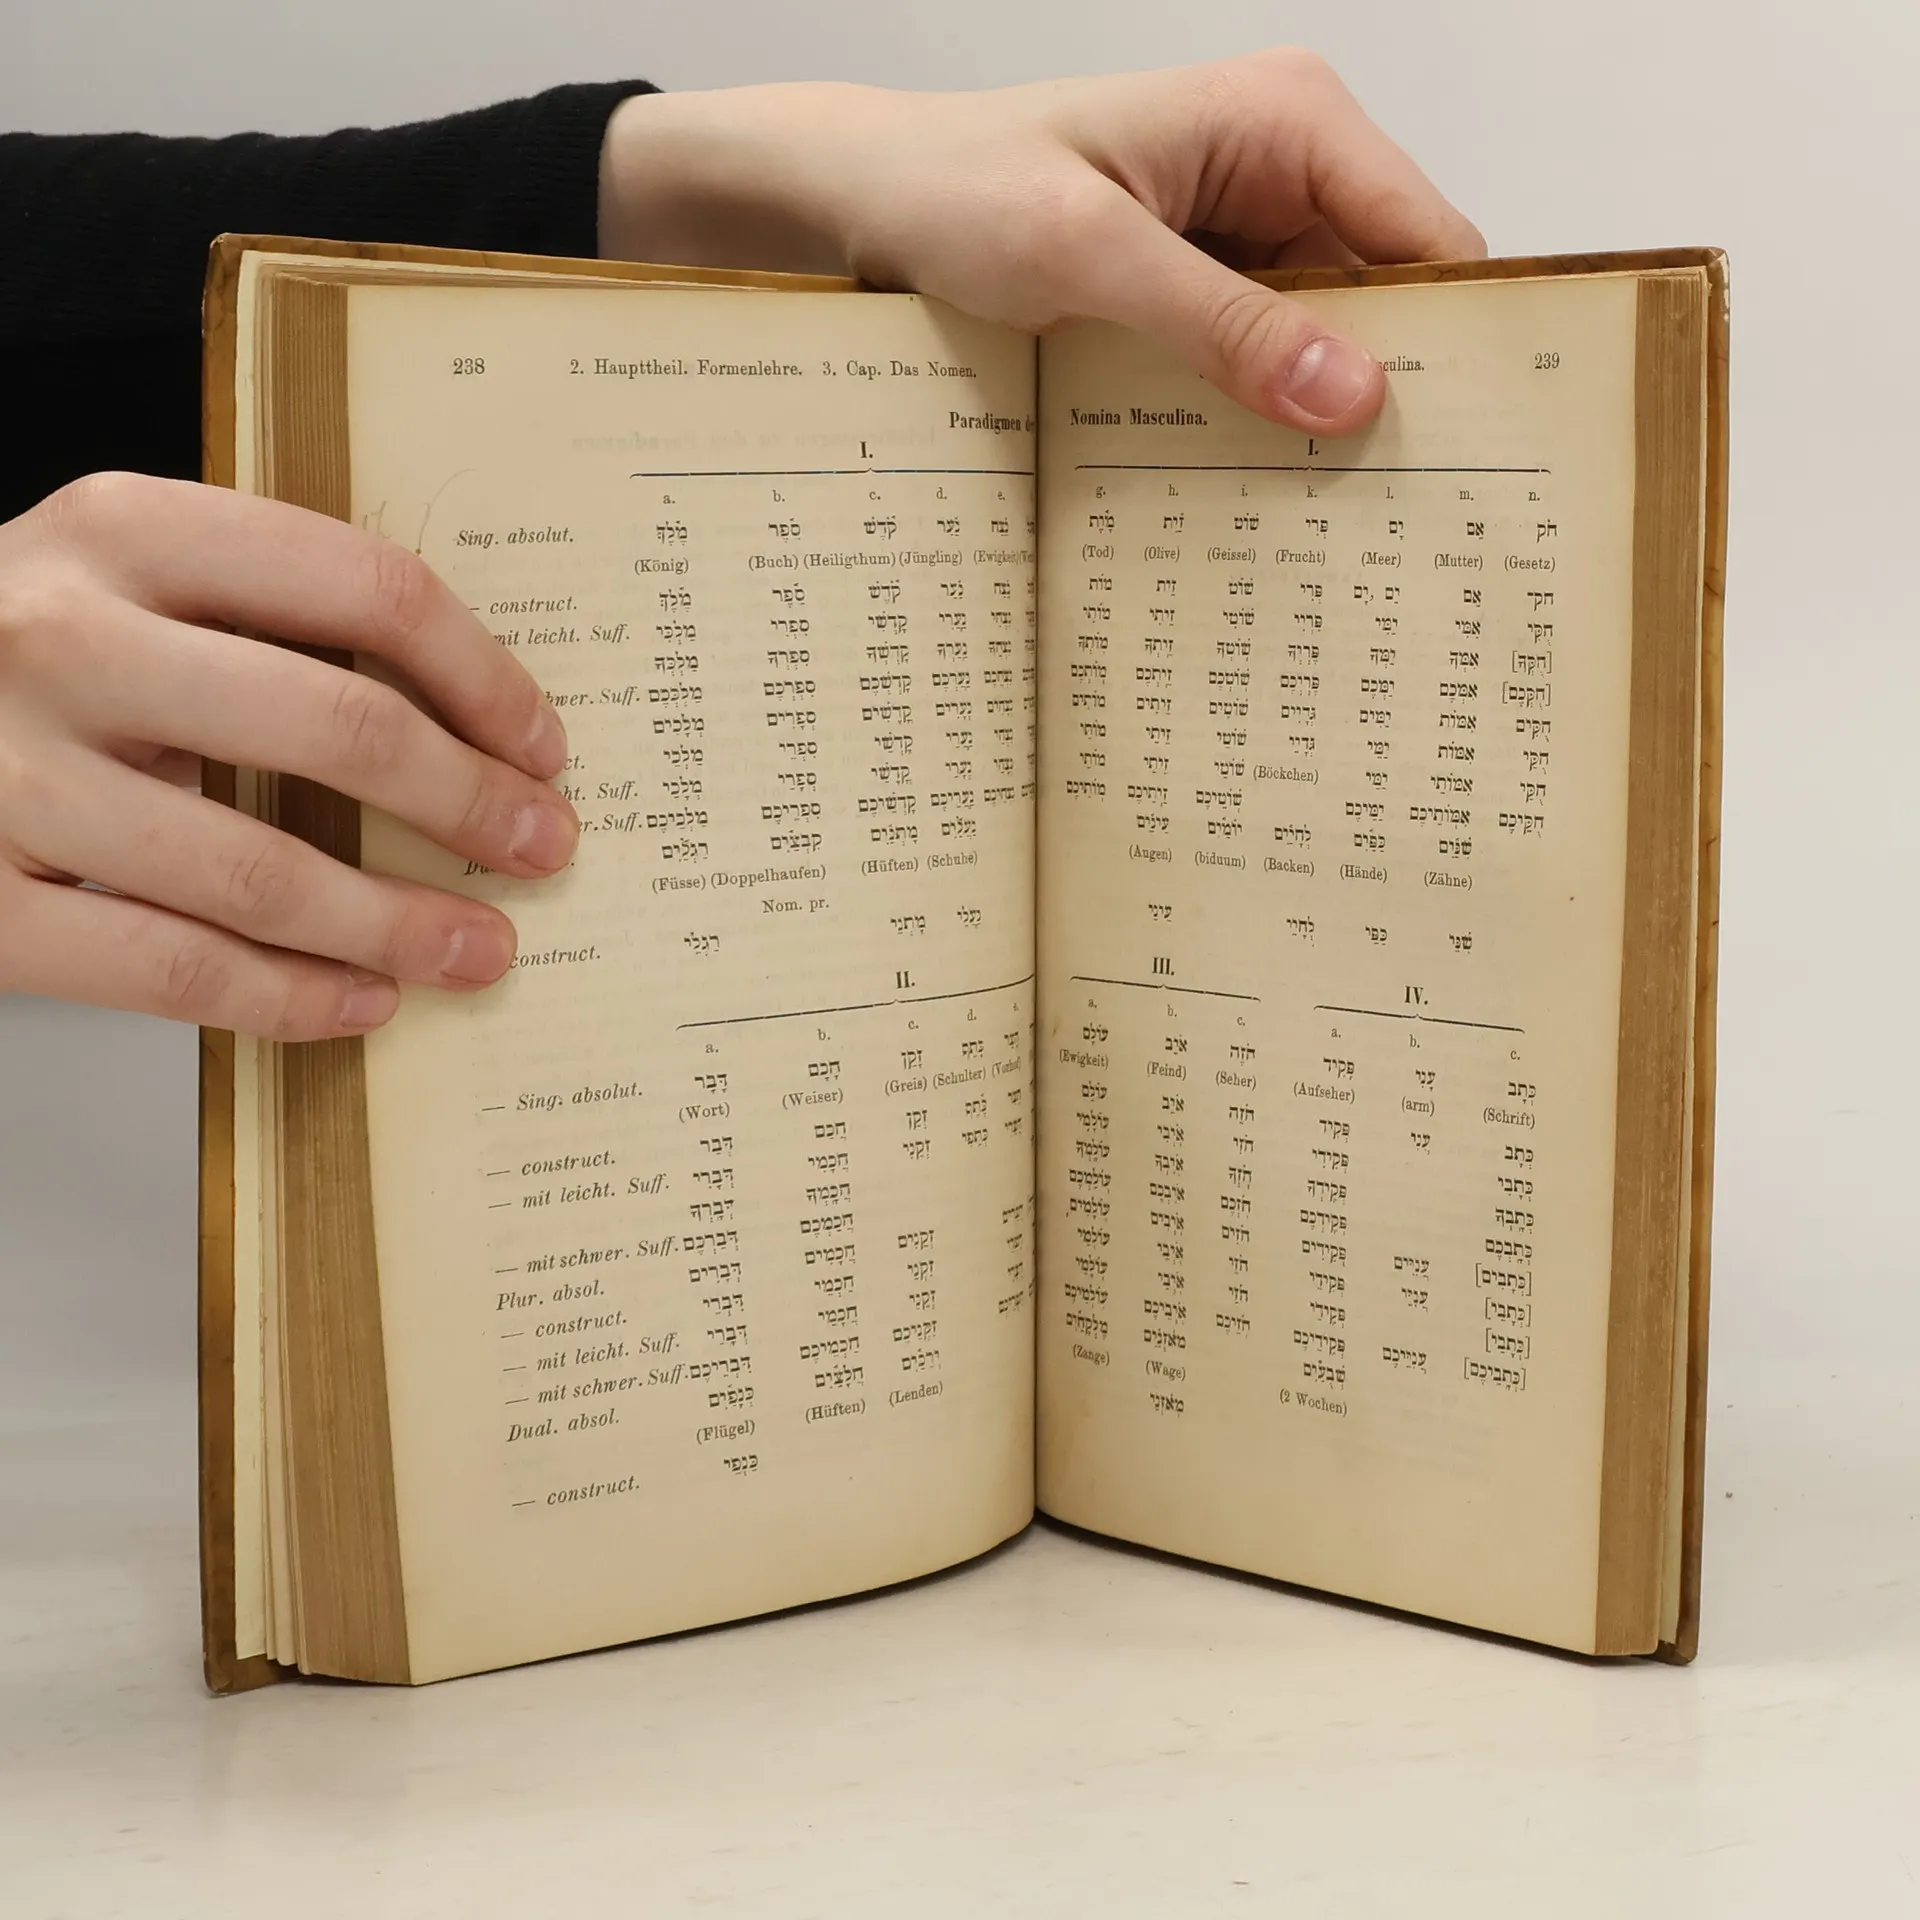 238 2. Haupttheil. Formenlehre. 3. Cap. Das Nomen.
Paradigmen
I.
a. b. c. d. e.
Sing. absolut. מֶלֶךְ סֵפֶר קֹדֶשׁ נַעַר נֵצַח
(König) (Buch) (Heiligthum) (Jüngling) (Ewigkeit)
— construct. מֶלֶךְ סֵפֶר קֹדֶשׁ נַעַר נֵצַח
mit leicht. Suff. מַלְכִּי סִפְרִי קָדְשִׁי נַעֲרִי נִצְחִי
מַלְכְּךָ סִפְרְךָ קָדְשְׁךָ נַעַרְךָ
Suff. מַלְכְּכֶם סִפְרְכֶם קָדְשְׁכֶם נַעַרְכֶם
מְלָכִים סְפָרִים קֳדָשִׁים נְעָרִים נְצָחִים
מַלְכֵי סִפְרֵי קָדְשֵׁי נַעֲרֵי נִצְחֵי
Suff. מְלָכַי סְפָרַי קֳדָשַׁי נְעָרַי נְצָחַי
Suff. מַלְכֵיכֶם סִפְרֵיכֶם קָדְשֵׁיכֶם נַעֲרֵיכֶם נִצְחֵיכֶם
רַגְלַיִם קִבְצַיִם מָתְנַיִם נַעֲלַיִם
(Füsse) (Doppelhaufen) (Hüften) (Schuhe)
Nom. pr.
construct. רַגְלֵי מָתְנֵי נַעֲלֵי
II.
a. b. c. d. e.
— Sing. absolut. דָּבָר חָכָם זָקֵן כָּתֵף
(Wort) (Weiser) (Greis) (Schulter)
— construct. דְּבַר חֲכַם זְקַן כֶּתֶף
— mit leicht. Suff. דְּבָרִי חֲכָמִי זְקֵנִי כְּתֵפִי
דְּבָרְךָ חֲכָמְךָ
— mit schwer. Suff. דְּבַרְכֶם חֲכַמְכֶם
Plur. absol. דְּבָרִים חֲכָמִים זְקֵנִים
— construct. דִּבְרֵי חַכְמֵי זִקְנֵי
— mit leicht. Suff. דְּבָרַי חֲכָמַי זְקֵנַי
— mit schwer. Suff. דִּבְרֵיכֶם חַכְמֵיכֶם זִקְנֵיכֶם
Dual. absol. כְּנָפַיִם חֲלָצַיִם יְרֵכַיִם
(Flügel) (Hüften) (Lenden)
— construct. כַּנְפֵי
239
Nomina Masculina.
I.
g. h. i. k. l. m. n.
מָוֶת זַיִת שׁוֹט פְּרִי יָם אֵם חֹק
(Tod) (Olive) (Geissel) (Frucht) (Meer) (Mutter) (Gesetz)
מוֹת זֵית שׁוֹט פְּרִי יַם, יָם אֵם חָק־
מוֹתִי זֵיתִי שׁוֹטִי פִּרְיִי יַמִּי אִמִּי חֻקִּי
מוֹתְךָ זֵיתְךָ שׁוֹטְךָ פֶּרְיְךָ יַמְּךָ אִמְּךָ [חֻקְּךָ]
מוֹתְכֶם זֵיתְכֶם שׁוֹטְכֶם פֶּרְיְכֶם יַמְּכֶם אִמְּכֶם [חֻקְּכֶם]
מוֹתִים זֵיתִים שׁוֹטִים גְּדָיִים יַמִּים אִמּוֹת חֻקִּים
מוֹתֵי זֵיתֵי שׁוֹטֵי גְּדָיֵי יַמֵּי אִמּוֹת חֻקֵּי
מוֹתַי זֵיתַי שׁוֹטַי (Böckchen) יַמַּי אִמּוֹתַי חֻקַּי
מוֹתֵיכֶם זֵיתֵיכֶם שׁוֹטֵיכֶם יַמֵּיכֶם אִמּוֹתֵיכֶם חֻקֵּיכֶם
עֵינַיִם יוֹמַיִם לְחָיַיִם כַּפַּיִם שִׁנַּיִם
(Augen) (biduum) (Backen) (Hände) (Zähne)
עֵינֵי לְחָיֵי כַּפֵּי שִׁנֵּי
III. IV.
a. b. c. a. b. c.
עוֹלָם אֹיֵב חֹזֶה פָּקִיד עָנִי כְּתָב
(Ewigkeit) (Feind) (Seher) (Aufseher) (arm) (Schrift)
עוֹלַם אֹיֵב חֹזֵה פְּקִיד עֲנִי כְּתָב
עוֹלָמִי אֹיְבִי חֹזִי פְּקִידִי כְּתָבִי
עוֹלָמְךָ אֹיִבְךָ חֹזְךָ פְּקִידְךָ כְּתָבְךָ
עוֹלַמְכֶם אֹיִבְכֶם חֹזְכֶם פְּקִידְכֶם כְּתָבְכֶם
עוֹלָמִים אֹיְבִים חֹזִים פְּקִידִים עֲנִיִּים [כְּתָבִים]
עוֹלְמֵי אֹיְבֵי חֹזֵי פְּקִידֵי עֲנִיֵּי [כְּתָבֵי]
עוֹלָמַי אֹיְבַי חֹזַי פְּקִידַי [כְּתָבַי]
עוֹלְמֵיכֶם אֹיְבֵיכֶם חֹזֵיכֶם פְּקִידֵיכֶם עֲנִיֵּיכֶם [כְּתָבֵיכֶם]
מֶלְקָחַיִם מֹאזְנַיִם שְׁבֻעַיִם
(Zange) (Wage) (2 Wochen)
מֹאזְנֵי